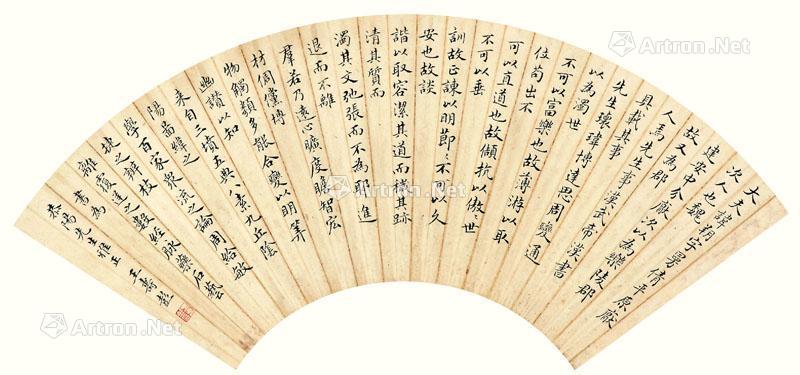 大夫諱朔字曼倩平原厭
次人也魏
建安中分厭次以為樂陵郡
故又為郡
人焉先生事漢武帝漢書
具載其事
先生瓌瑋博達思周變通
以為濁世
不可以富樂也故薄游以取
位苟出不
可以直道也故傾抗以傲々世
不可以垂
訓故正諫以明節々不可以久
安也故談
諧以取容潔其道而穢其跡
清其質而
濁其文弛張而不為耶進
退而不離
羣若乃遠心曠度贍智宏
材倜儻博
物觸類多能合變以明筭
幽讚以知
來自三墳五典八索九丘陰
陽圖緯之
學百家衆流之論周給敏
捷之辨枝
離覆逆之數經脉藥石藝
書為
陽先生雅正 王壽彭
Artron.Net
Artron.Net
Artron.Net
Artron.Net